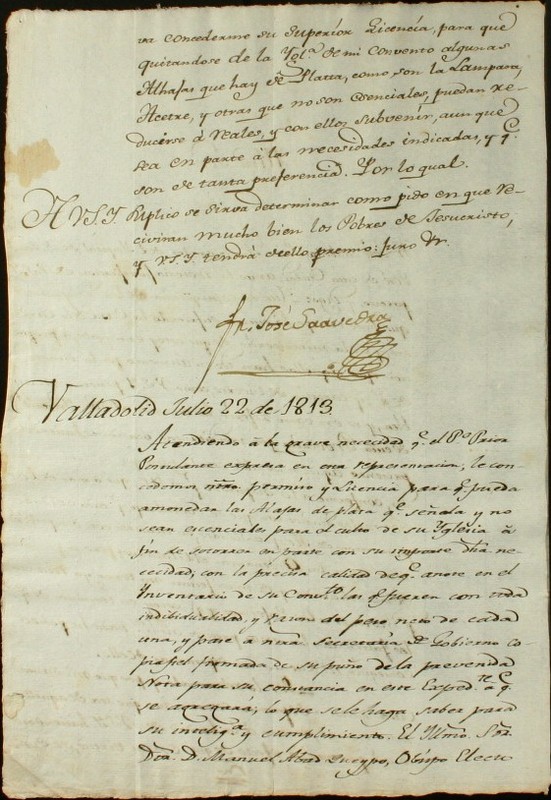 va concederme su Superiór Licencía, para que
quitandose de la Ygl.ª de mi Convento algunas
Alhajas que hay de Platta, como son la Lampara,
Acetre, y otras que no son esenciales, puedan re-
ducirse à reales, y con ellos subvenir, aun que
sea en parte á las necesidades indicadas, y q.e
son de tanta preferencia. Por lo qual.
A V.S.Y. suplico se sirva determinar como pido en que re-
civiran mucho bien los Pobres de Jesucristo,
y V.S.Y. tendrá de ello premio: juro &c.
Fr. José Saavedra
Valladolid Julio 22 de 1813.
Atendiendo á la grave necesidad q.e el P.e Prior
Postulante expresa en esta representacion; le con-
cedemos ntro. permiso y Licencia para q.e pueda
amonedar las Alajas de plata q.e señala y no
sean esenciales para el culto de su Yglesia á
fin de socorrer en parte con su importe dha ne-
cesidad; con la precisa calidad de q.e anote en el
Ynventario de su Conv.to las q.e fueren con toda
indibidualidad, y razon del peso neto de cada
una, y pase a ntra Secretaria de Gobierno co-
pia fiel firmada de su puño de la prevenida
Nota para su constancia en este Exped.te á q.e
se agregará; lo que se le haga saber para
su intelig.ª y cumplimiento. El Yllmo. Sor.
Dr. D. Manuel Abad Queypo, Obispo Electo